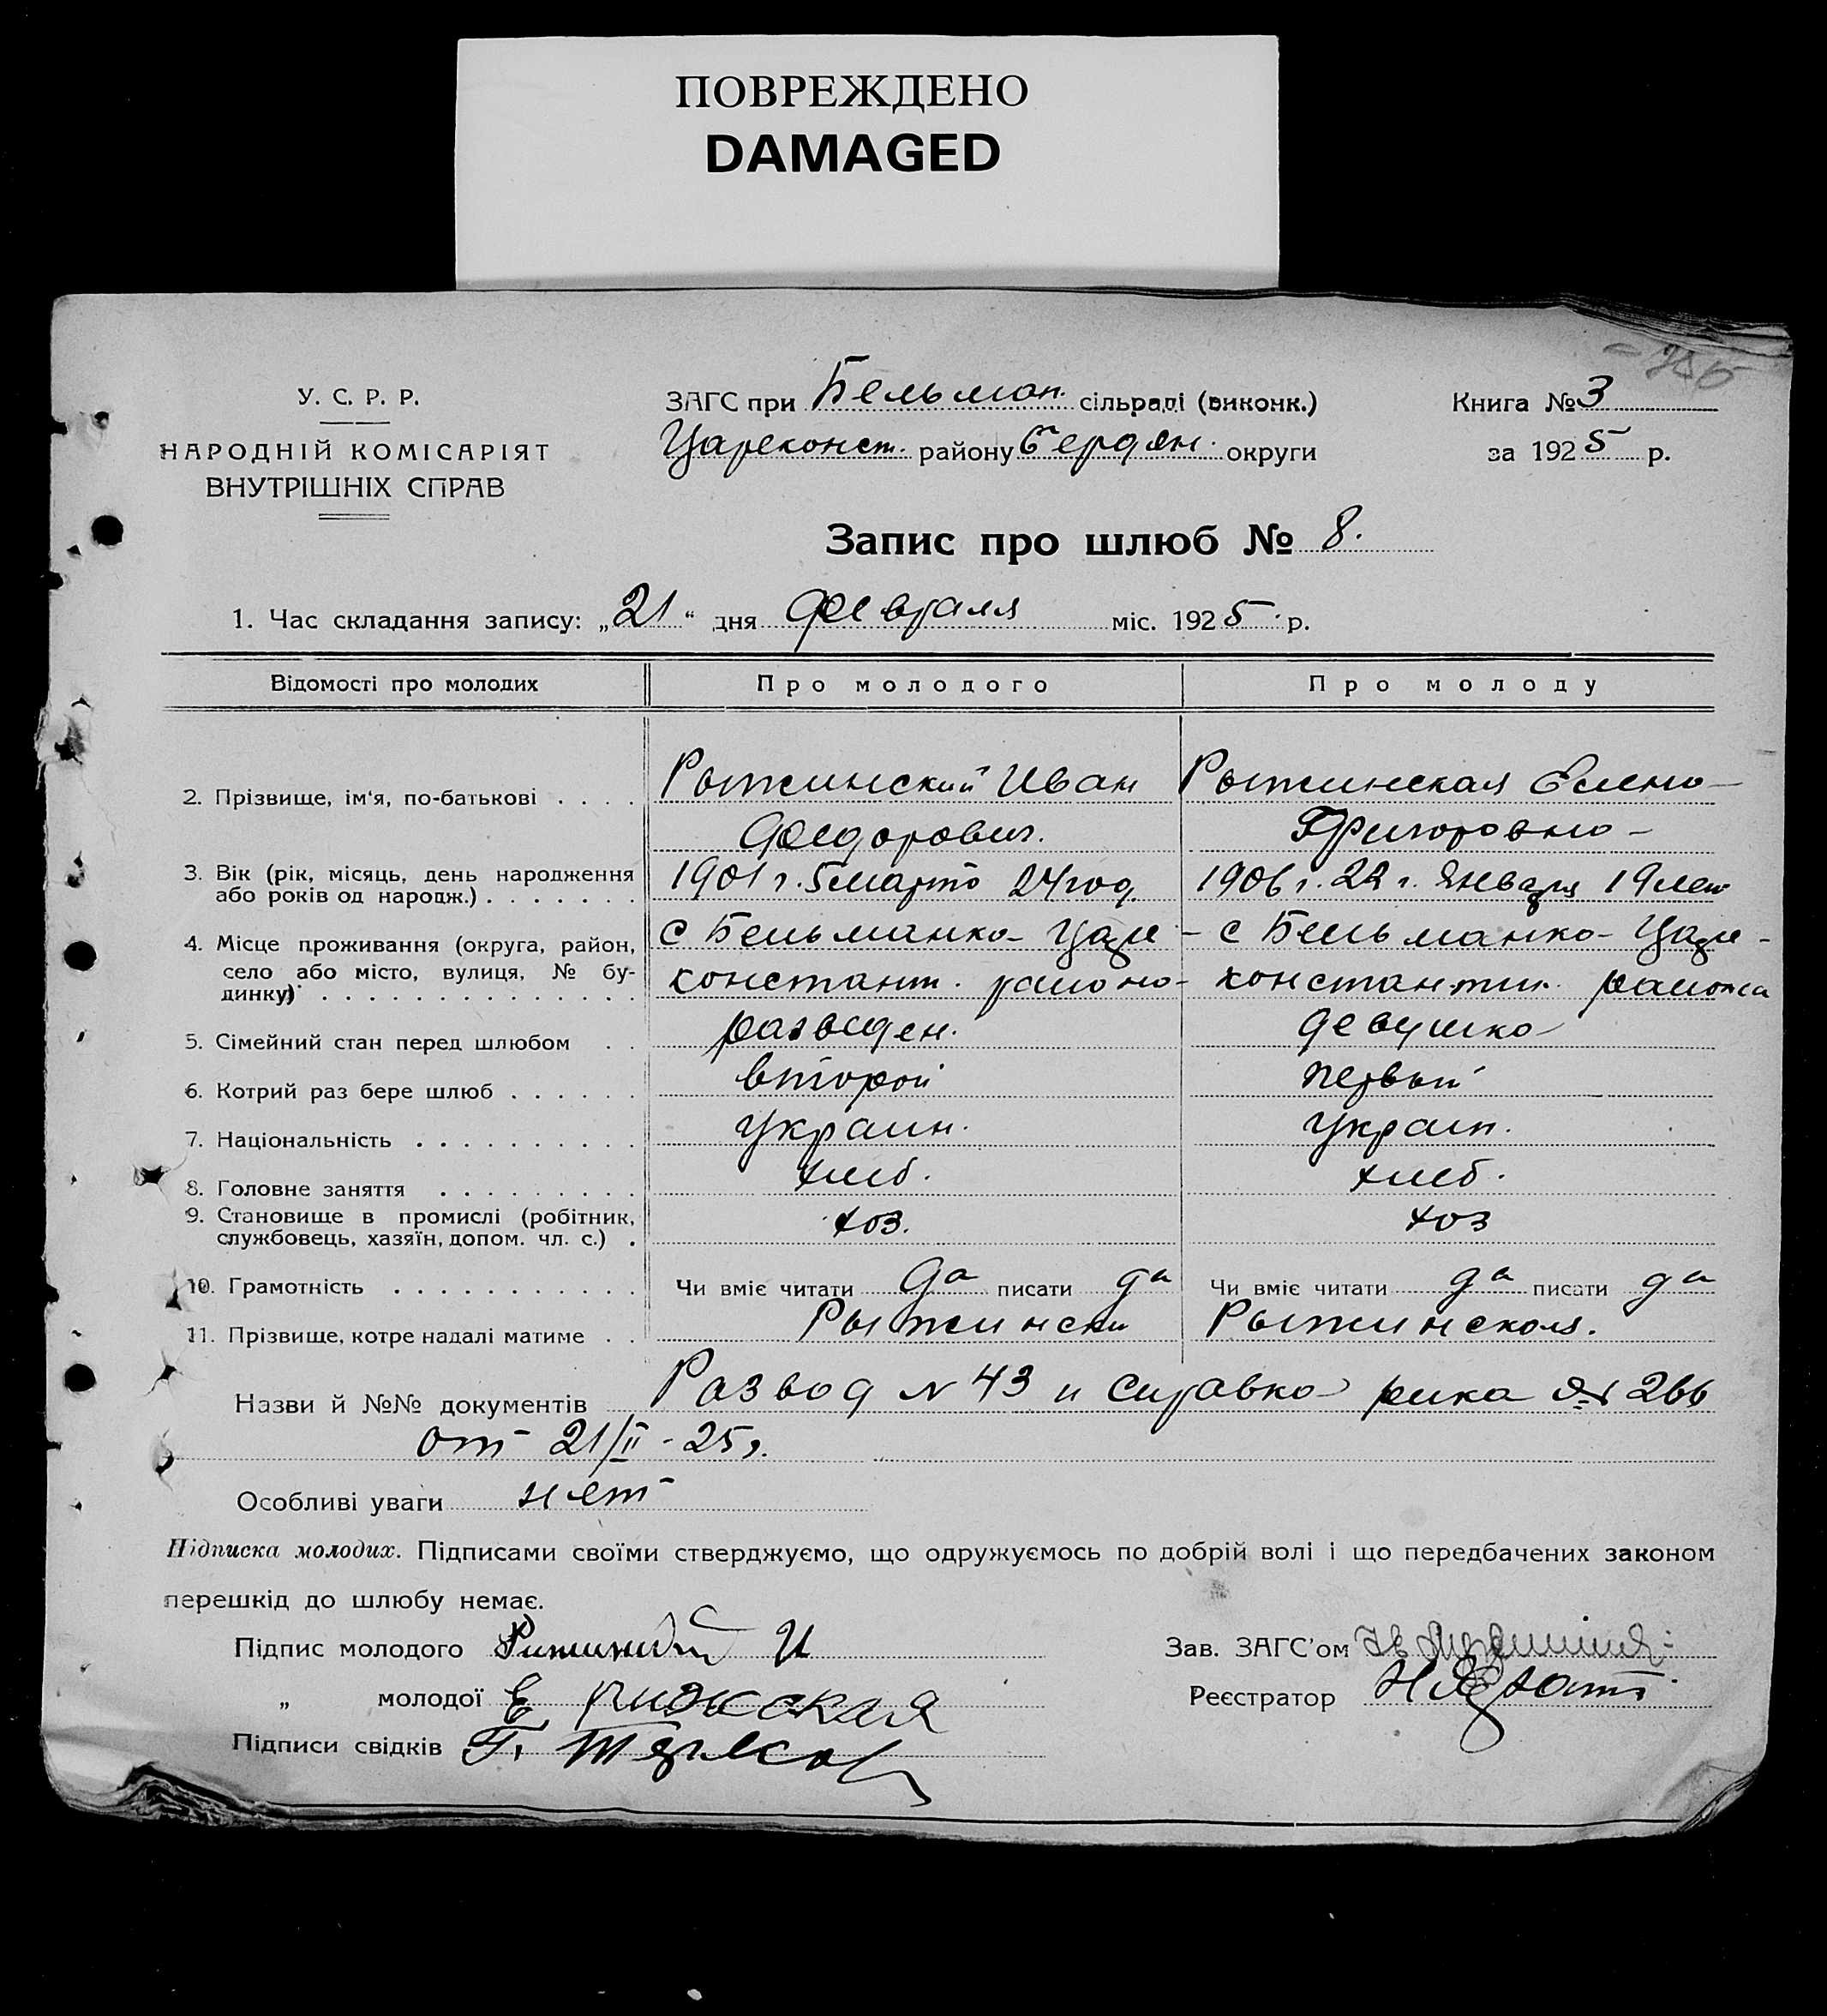 ПОВРЕЖДЕНО
DAMAGED
У. С. Р. Р.
НАРОДНІЙ КОМІСАРІЯТ
ВНУТРІШНІХ СПРАВ
ЗАГС при Бельман. сільраді (виконк.)
Цареконст. району Бердян. округи
Книга № 3
за 1925 р.
Запис про шлюб № 8.
1. Час складання запису: „21“ дня февраля міс. 1925 р.
Відомості про молодих Про молодого Про молоду
2. Прізвище, ім'я, по-батькові . . . . Рыжинский Иван Рыжинская Елена
Федорович. Григоровна
3. Вік (рік, місяць, день народження
або років од народж.) . . . . . . . 1901 г. 5 марта 24 год. 1906 г. 22 г. Января 19 лет
4. Місце проживання (округа, район, с Бельманка Царе- с Бельманка Царе-
село або місто, вулиця, № бу- констант. района константин. района
динку) . . . . . . . . . . . . . .
5. Сімейний стан перед шлюбом . . разведен. девушка
6. Котрий раз бере шлюб . . . . . . второй первый
7. Національність . . . . . . . . . . украин. украин.
8. Головне заняття . . . . . . . . . хлеб. хлеб.
9. Становище в промислі (робітник,
службовець, хазяїн, допом. чл. с.) . хоз. хоз
10. Грамотність . . . . . . . . . . . Чи вміє читати да писати да Чи вміє читати да писати да
11. Прізвище, котре надалі матиме . . Рыжински Рыжинская.
Назви й №№ документів Развод N 43 и справка рика № 266
от 21/II - 25 г.
Особливі уваги нет
Підписка молодих. Підписами своїми стверджуємо, що одружуємось по добрій волі і що передбачених законом
перешкід до шлюбу немає.
Підпис молодого И
Зав. ЗАГС'ом
„ молодої Е рижская
Реєстратор
Підписи свідків Г.